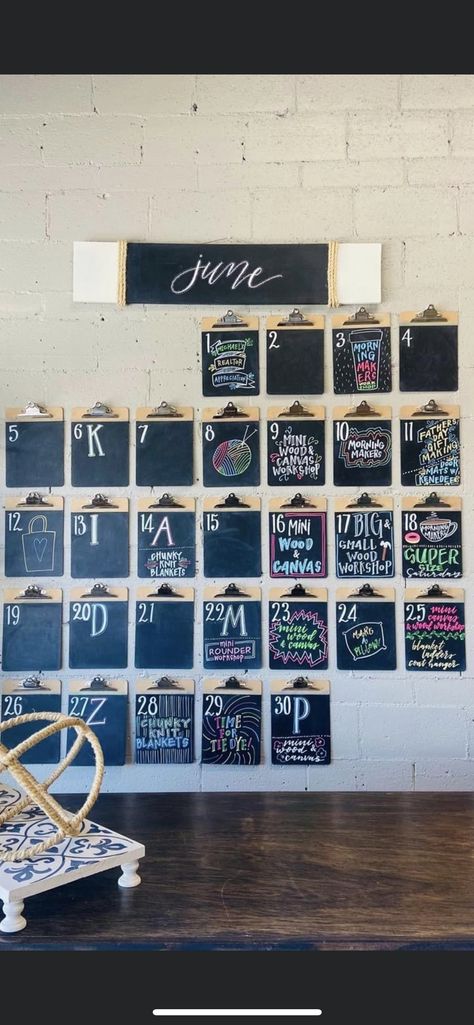 june
1
MICHAEL'S
REALTOR
APPRECIATION
2
3
MORNING
MAKERS
4
5
6 K
7
8
9
MINI
WOOD &
CANVAS
WORKSHOP
10
MORNING
MAKERS
11
FATHERS
DAY
GIFT
MAKING
DOOR
MATS W/
KENEDEE
12
13 I
14 A
CHUNKY
KNIT
BLANKETS
15
16 MINI
WOOD
&
CANVAS
17 BIG &
SMALL WOOD
WORKSHOP
18
MORNING
MAKERS
SUPER
SIZE
Saturdays
19
20 D
21
22 M
mini
ROUNDER
WORKSHOP
23
mini
wood
& canvas
24
MAKE
A
PILLOW
25
mini canvas
& wood workshop
blanket
ladders
coat hanger
26
27 Z
28
CHUNKY
KNIT
BLANKETS
29
TIME
FOR
TIE DYE!
30 P
mini
wood &
canvas